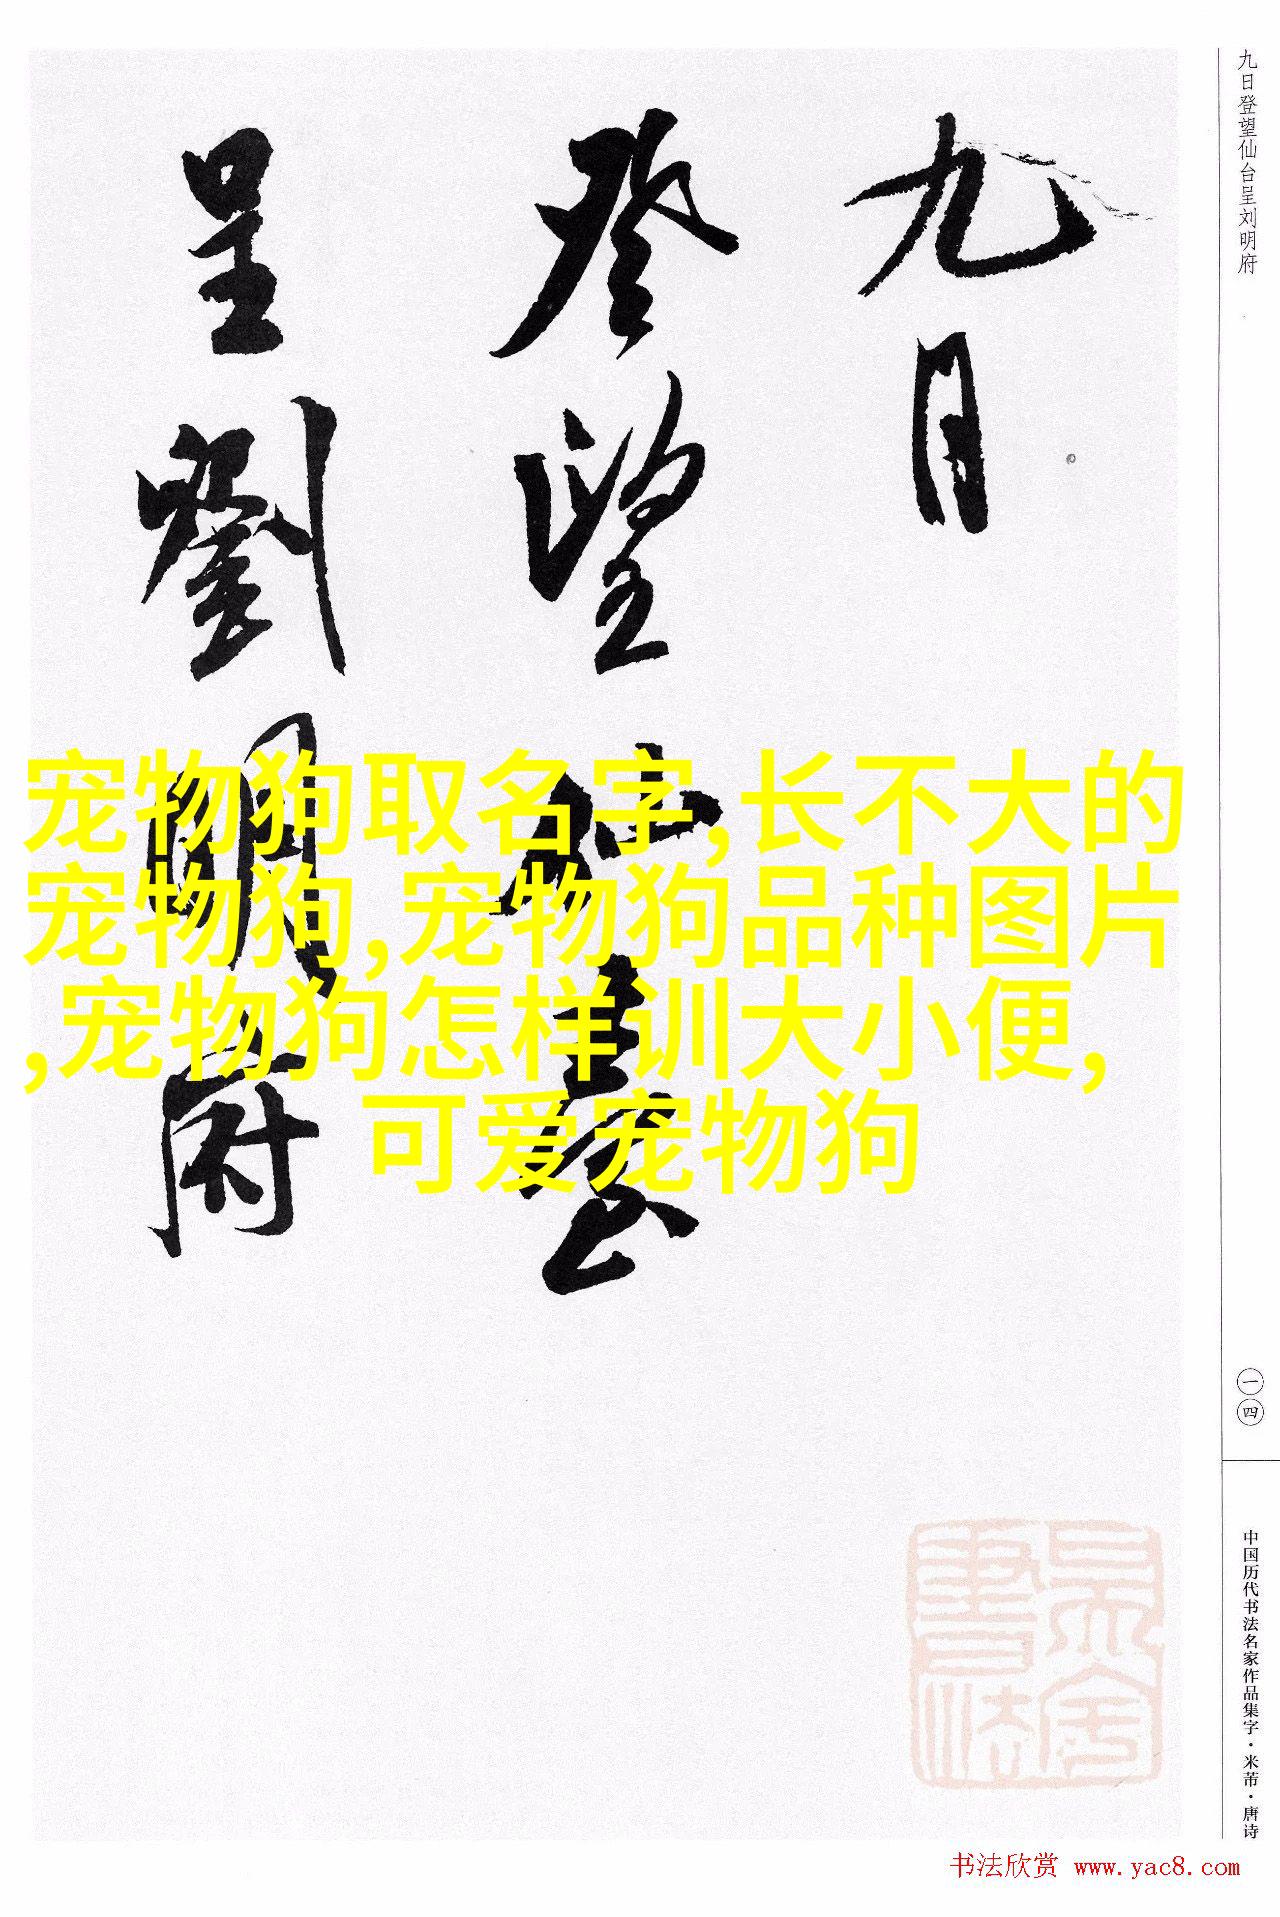 九日
登望仙臺
呈劉明府
宠物狗取名字,长不大的
宠物狗,宠物狗品种图片
,宠物狗怎样训大小便,
可爱宠物狗
九日登望仙台呈刘明府
一四
中国历代书法名家作品集字·米芾·唐诗
书法欣赏 www.yac8.com